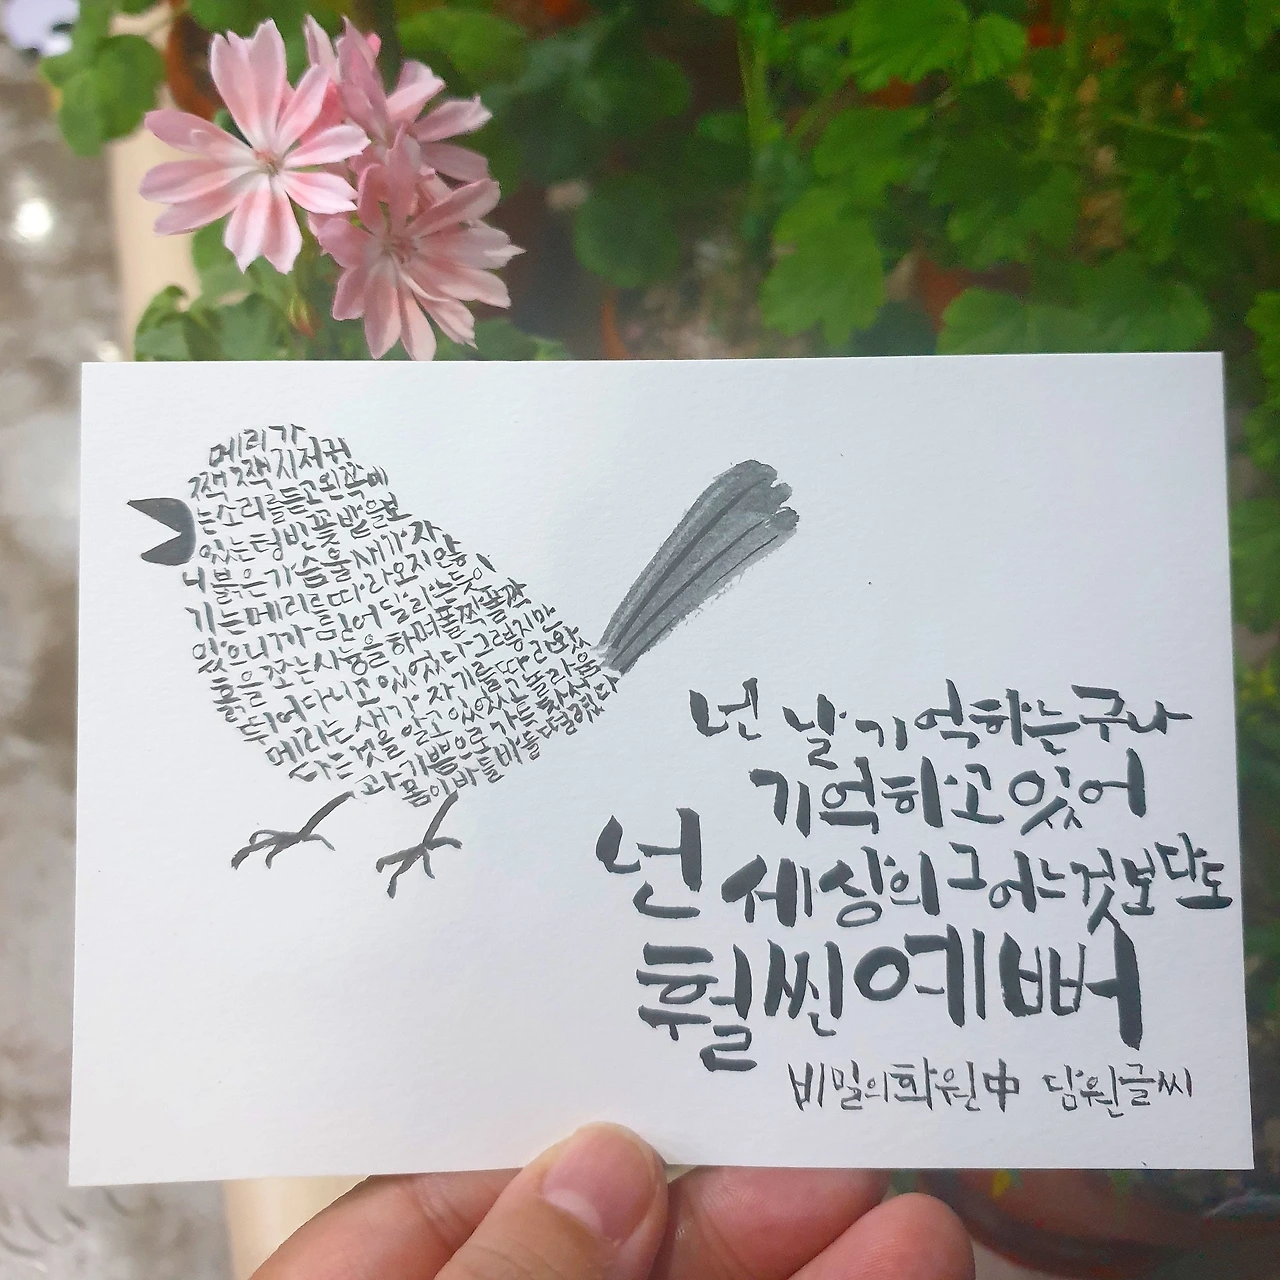 메리가
짹짹지저귀
는소리를듣고왼쪽에
있는텅빈꽃밭을보
니붉은가슴울새가자
기는메리를따라오지않
있으니까믿어달라는듯이
흙을쪼는시늉을하며폴짝폴짝
뛰어다니고있었다그렇지만
메리는새가자기를따라왔
다는것을알고있었고놀라움
과기쁨으로가득차서
몸이바들바들떨렸다
넌날기억하는구나
기억하고있어
넌세상의그어느것보다도
훨씬예뻐
비밀의화원中 담원글씨